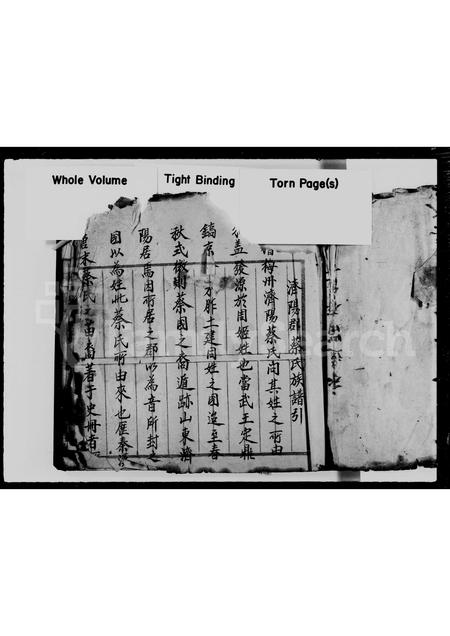 Whole Volume
Tight Binding
Torn Page(s)
濟陽郡蔡氏族譜引
梅州濟陽蔡氏閱其姓之所由
蓋發源於周姬姓也當武王定鼎
鎬京 方胙土建同姓之國迨至春
秋式微則蔡國之裔遁跡山東濟
陽居焉因所居之郡以為音所封之
國以為姓此蔡氏所由來也歷秦漢
宋蔡氏之苗裔著于史冊者